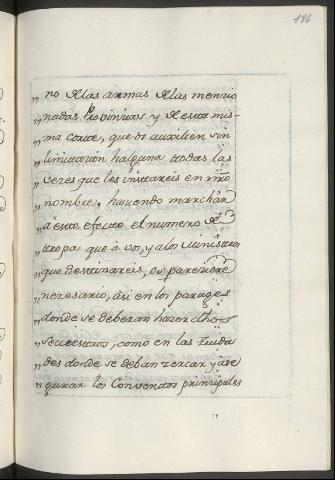 186
„ no de las armas de las mencio
„ nadas Provincias y de esta mis-
„ ma corte, que os auxilien sin
„ limitacion halguna todas las
„ veces que los instareis en mro
„ nombre, haciendo marchar
„ à este efecto el numero de
„ tropa que à vos, y a los Ministros
„ que destinareis, os pareciere
„ necesario, asi en los parages
„ donde se deberan hazer dhos
„ secuestros, como en las Ciuda
„ des donde se deban zercar y ase
„ gurar los Conventos principales